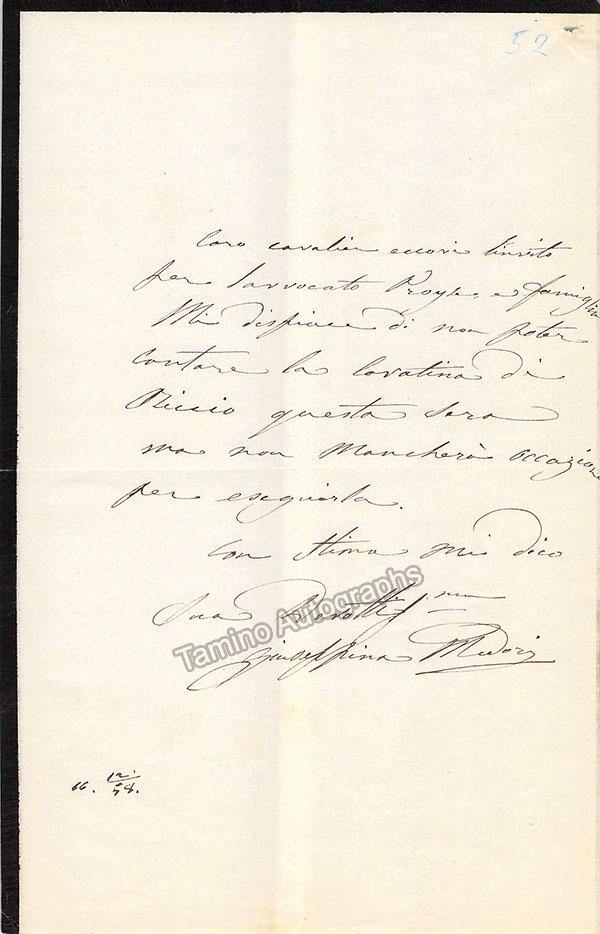 52
Caro cavalier eccovi l'invito
per l'avvocato e famiglia
Mi dispiace di non poter
cantare la Cavatina di
Riccio questa sera
ma non mancherà occazione
per eseguirla.
Con stima mi dico
Sua Devotissma
Giuseppina Medori
Tamino Autographs